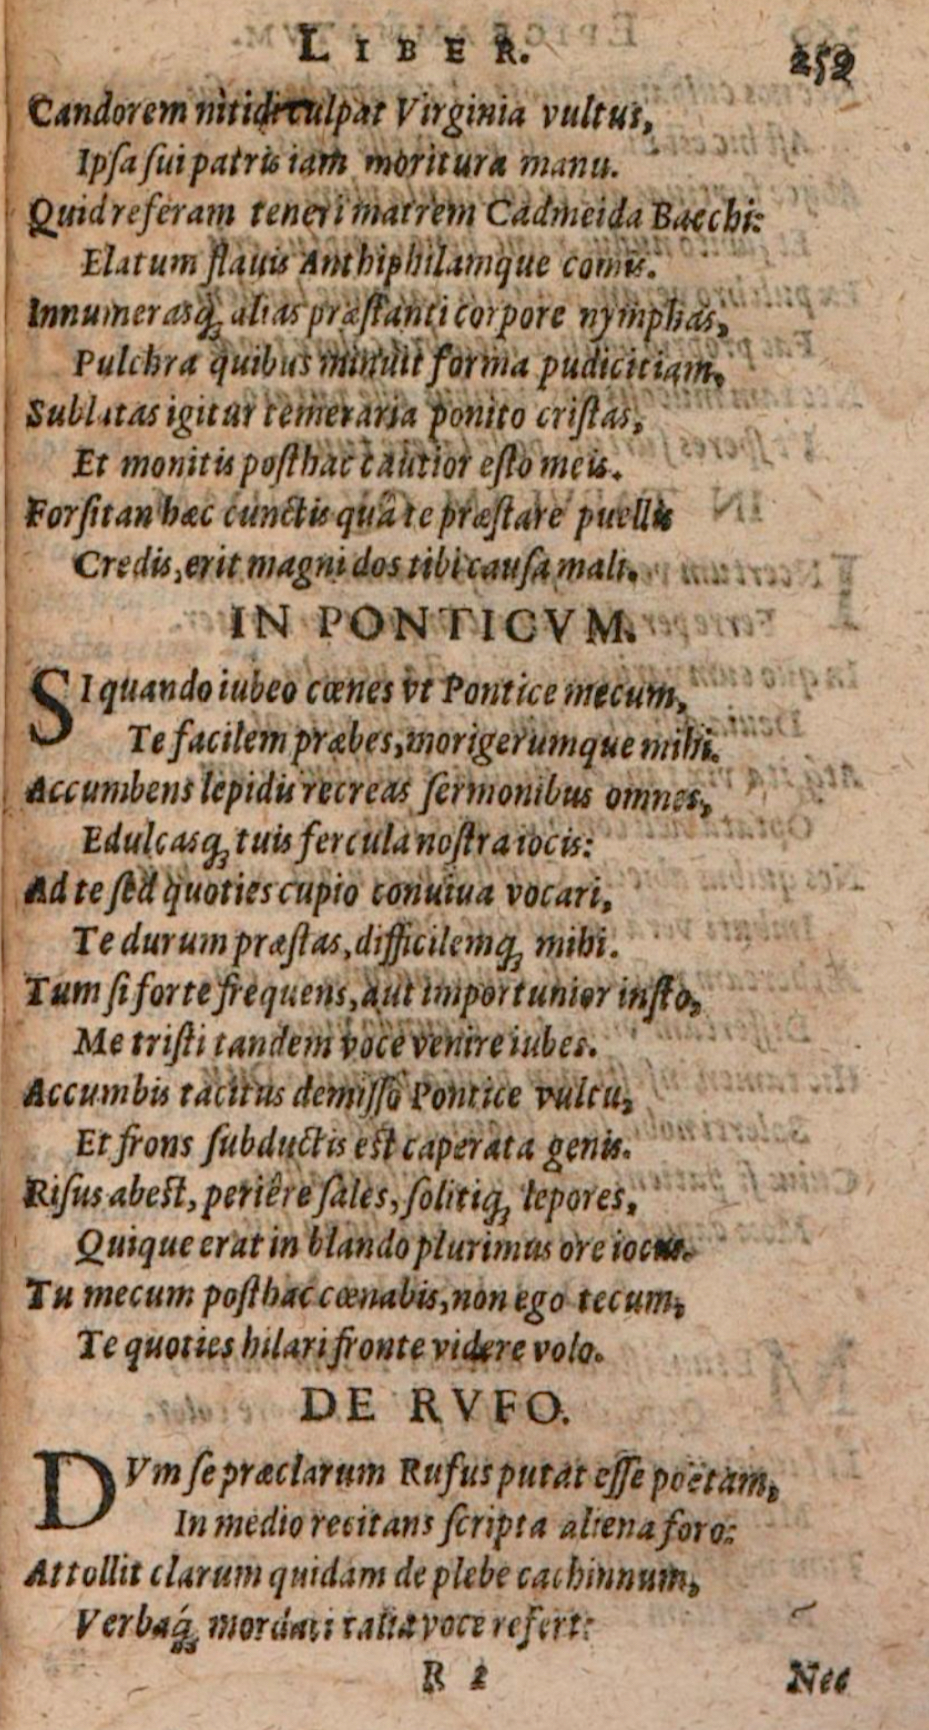 LIBER. 259
Candorem nitidi culpat Virginia vultus,
Ipſa ſui patris iam moritura manu.
Quid referam teneri matrem Cadmeida Bacchi:
Elatum flauis Anthiphilamque comis.
Innumerasq́; alias præſtanti corpore nymphas,
Pulchra quibus minuit forma pudicitiam.
Sublatas igitur temeraria ponito criſtas,
Et monitis poſthac cautior eſto meis.
Forſitan hæc cunctis quâ te præſtare puellis
Credis, erit magni dos tibi cauſa mali.
IN PONTICVM.
SI quando iubeo cœnes vt Pontice mecum,
Te facilem præbes, morigerumque mihi.
Accumbens lepidis recreas ſermonibus omnes,
Edulcasq; tuis fercula noſtra iocis:
Ad te ſed quoties cupio conuiua vocari,
Te durum præſtas, difficilemq; mihi.
Tum ſi forte frequens, aut importunior inſto,
Me triſti tandem voce venire iubes.
Accumbis tacitus demiſſo Pontice vultu,
Et frons ſubductis eſt caperata genis.
Riſus abeſt, periêre ſales, ſolitiq; lepores,
Quique erat in blando plurimus ore iocus.
Tu mecum poſthac cœnabis, non ego tecum,
Te quoties hilari fronte videre volo.
DE RVFO.
DVm ſe præclarum Rufus putat eſſe poëtam,
In medio recitans ſcripta aliena foro:
Attollit clarum quidam de plebe cachinnum,
Verbaq́; mordaci talia voce refert:
R 2 Nec